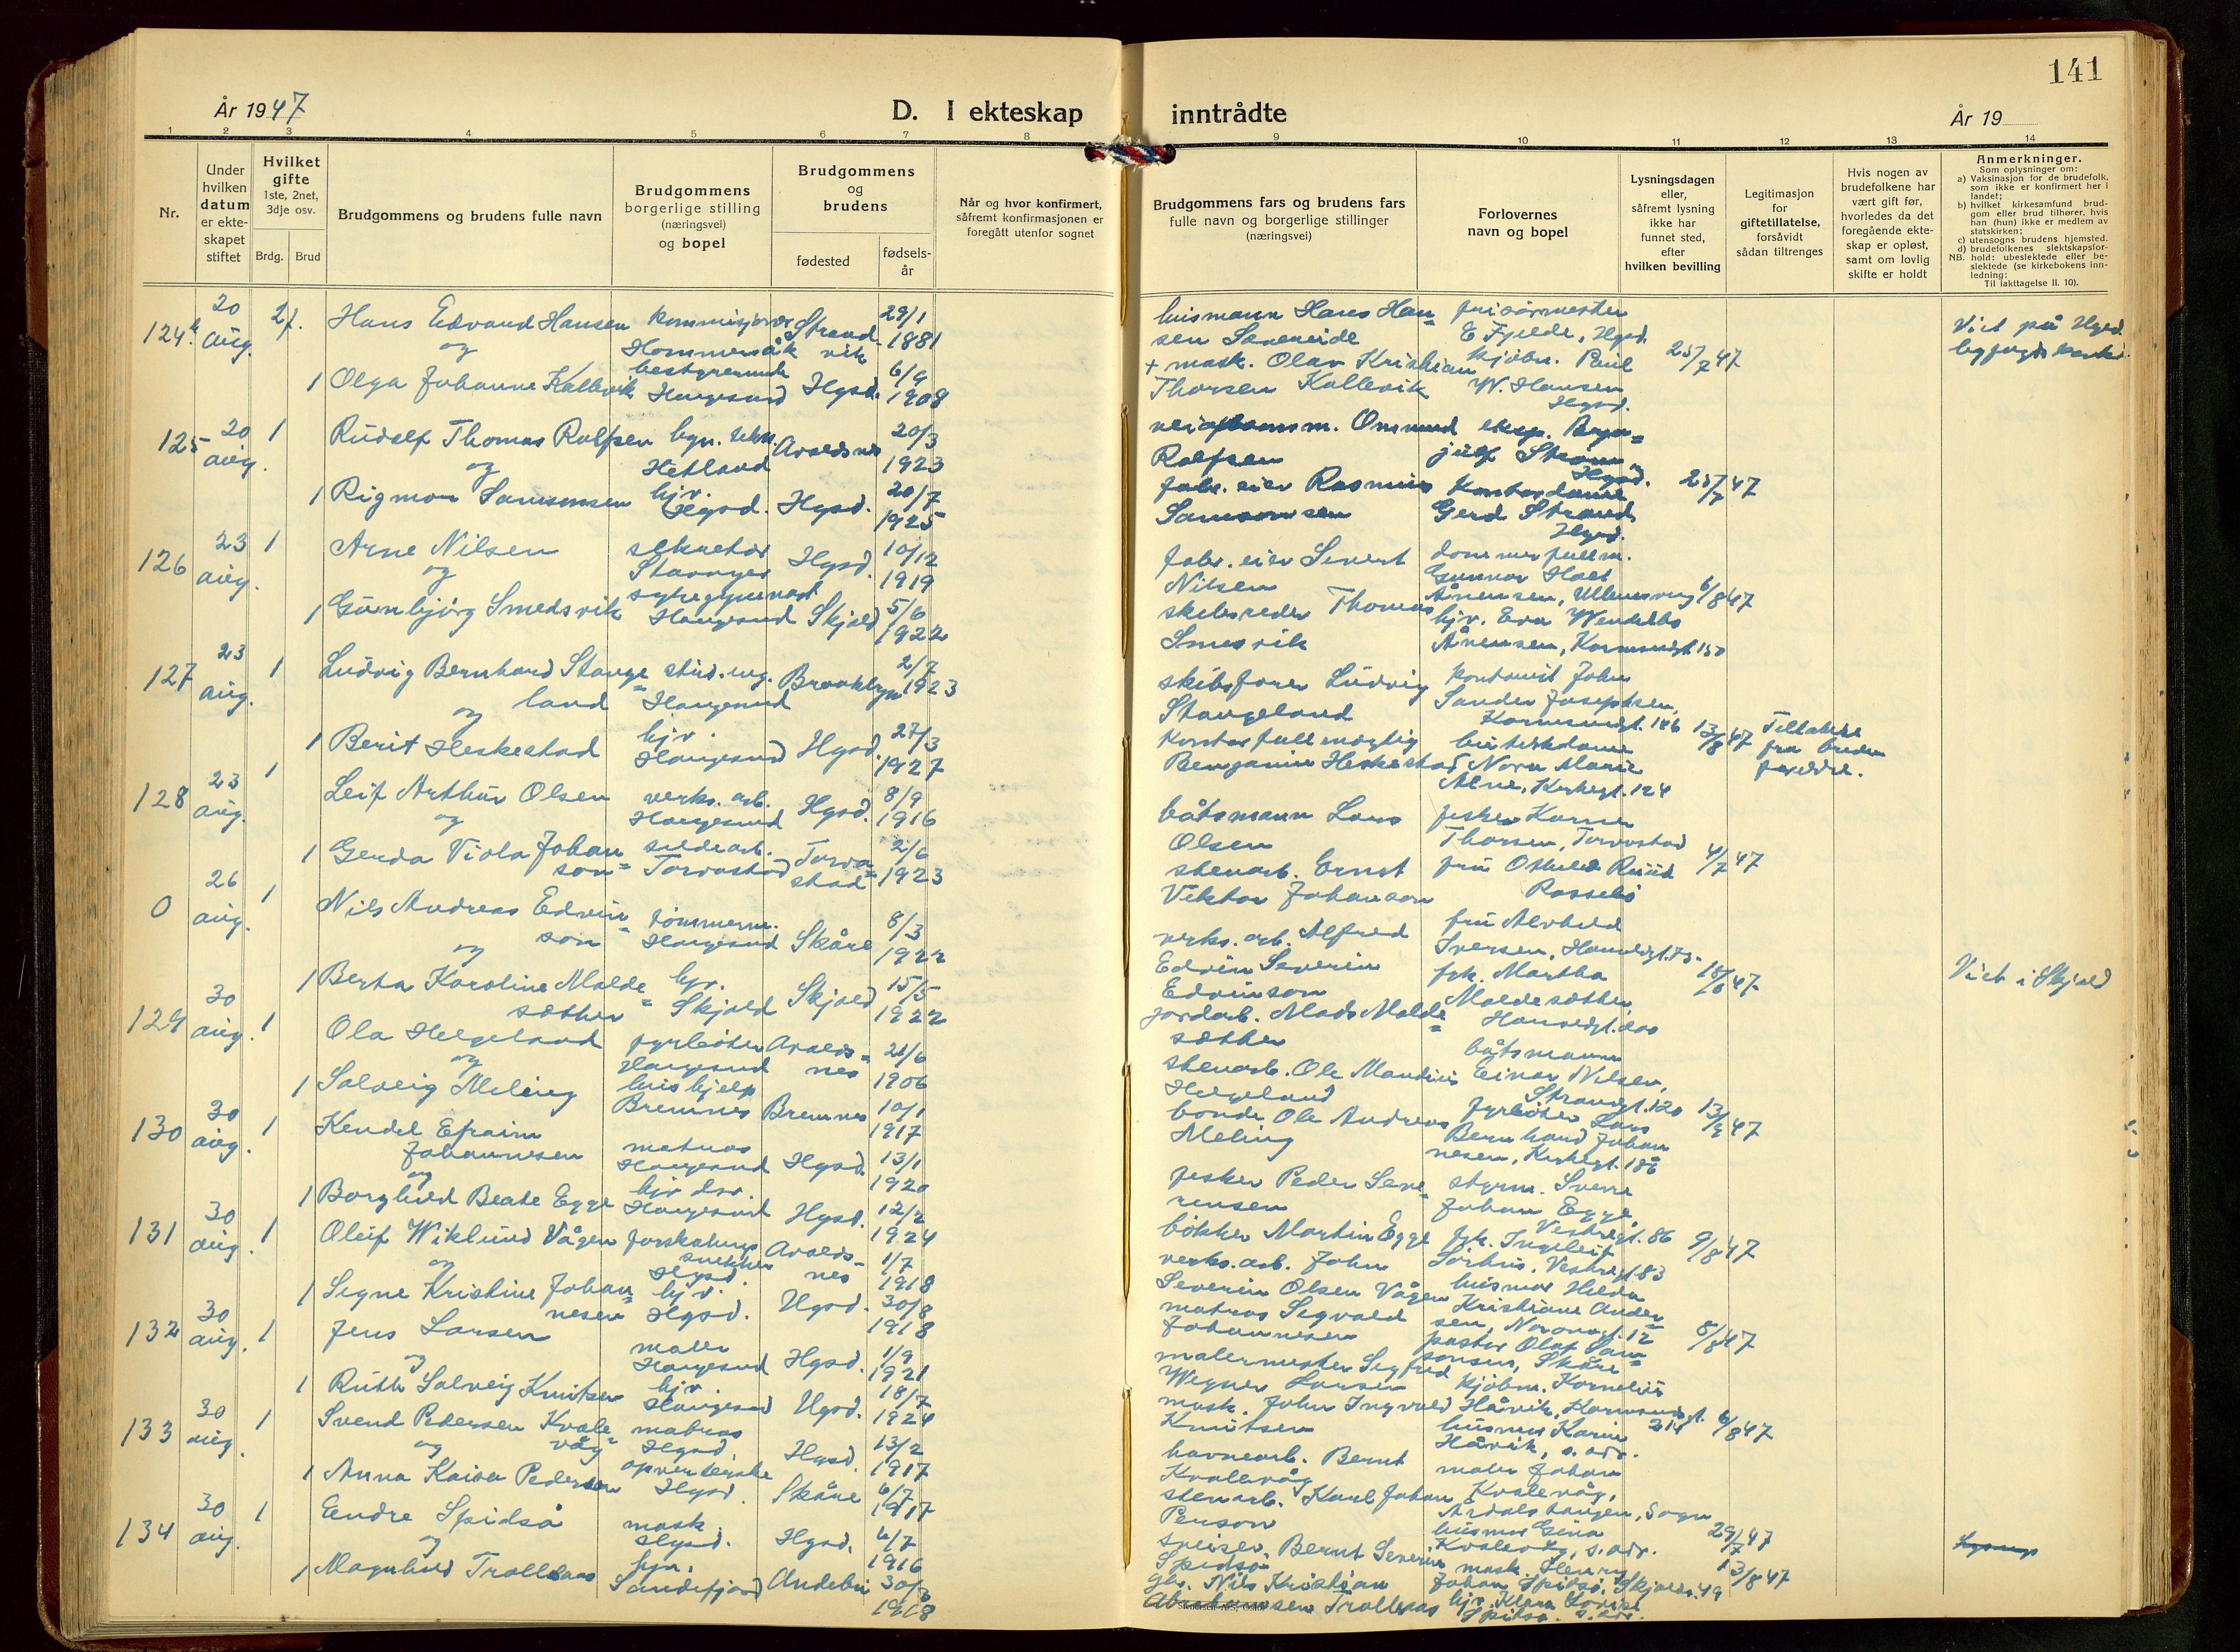 141
År 1947
D. I ekteskap inntrådte
År 19
1 2 3 4 5 6 7 8 9 10 11 12 13 14
Nr.
Under
hvilken
datum
er ekte-
skapet
stiftet
Hvilket
gifte
1ste, 2net,
3dje osv.
Brdg. Brud
Brudgommens og brudens fulle navn
Brudgommens
borgerlige stilling
(næringsvei)
og bopel
Brudgommens
og
brudens
fødested
fødsels-
år
Når og hvor konfirmert,
såfremt konfirmasjonen er
foregått utenfor sognet
Brudgommens fars og brudens fars
fulle navn og borgerlige stillinger
(næringsvei)
Forlovernes
navn og bopel
Lysningsdagen
eller,
såfremt lysning
ikke har
funnet sted,
efter
hvilken bevilling
Legitimasjon
for
giftetillatelse,
forsåvidt
sådan tiltrenges
Hvis nogen av
brudefolkene har
vært gift før,
hvorledes da det
foregående ekte-
skap er opløst,
samt om lovlig
skifte er holdt
Anmerkninger.
Som oplysninger om:
a) Vaksinasjon for de brudefolk,
som ikke er konfirmert her i
landet;
b) hvilket kirkesamfund brud-
gom eller brud tilhører, hvis
han (hun) ikke er medlem av
statskirken;
c) utensogns brudens hjemsted.
d) brudefolkenes slektskapsfor-
NB. hold: ubeslektede eller be-
slektede (se kirkebokens inn-
ledning:
Til iakttagelse II. 10).
124 20 aug. 2 Hans Edvard Hansen
Hommersåk Strand- vik 29/1 1881
husmann Hans Han-
sen Seveneide
frisørmester
E. Fjelde, Hgsd.
25/7 47
Viet på Hgsd.
og
1 Olga Johanne Kallevik bestyrerinde
Haugesund Hgsd. 6/9 1908
+ mask. Olav Kristian
Thorsen Kallevik
kjøbm. Paul
W. Hansen
Hgsd.
125 20 aug. 1 Rudolf Thomas Rolfsen
Hetland Avaldsnes 20/3 1923
Ommund
Rolfsen
Hgsd.
25/7 47
og
1 Rigmor Samsonsen hjv.
Hgsd. Hgsd. 20/7 1925
fabr. eier Rasmus
Samsonsen
Kontordame
Gerd Strand
Hgsd.
126 23 aug. 1 Arne Nilsen sekretær
Stavanger Hgsd. 10/12 1919
fabr. eier Severt
Nilsen
dommerfullm.
Gunnar Holt
Årnensen, Ullensvang 6/8 47
og
1 Gunbjörg Smedsvik
Haugesund Skjold 5/6 1922
skibsreder Thomas
Smedsvik
hjv. Eva Wendelbo
Årnensen, Karmsundgt. 150
127 23 aug. 1 Ludvig Bernhard Stange-
land stud. ing.
Haugesund Brooklyn 2/7 1923
skibsfører Ludvig
Stangeland
kontorist John
Sander Josephsen,
Karmsundgt. 186
13/8 47
Tillatelse
fra brudens
foreldre.
og
1 Berit Heskestad hjv.
Haugesund Hgsd. 27/3 1927
Kontorfullmægtig
Benjamin Heskestad
butikkdame
Nora Marie
Alne, Kirkegt. 124
128 23 aug. 1 Leif Arthur Olsen verks. arb.
Haugesund Hgsd. 8/9 1916
båtsmann Lars
Olsen
fisker Korner
Thorsen, Torvastad
4/7 47
og
1 Gerda Viola Johan-
son sildearb.
Torvastad Torva-
stad 2/6 1923
stenarb. Ernst
Viktor Johanson
fru Othilie Ruud
Rossebö
0 26 aug. 1 Nils Andreas Edvin-
son tömmerm.
Haugesund Skåre 8/3 1922
verks. arb. Alfred
Edvin Severin
Edvinson
fru Alvhild
Iversen,
18/8 47
Viet i Skjold
og
1 Berta Karoline Malde-
sæther hjv.
Skjold Skjold 15/5 1922
jordarb. Mads Malde-
sæther
frk. Martha
Maldesæther
129 30 aug. 1 Ola Helgeland fyrböter
Haugesund Avalds-
nes 21/6 1906
stenarb. Ole Mandius
Helgeland
båtsmann
Einar Nilsen,
Strandgt. 120
13/8 47
og
1 Solveig Meling hushjelp
Bremnes Bremnes 10/1 1917
bonde Ole Andreas
Meling
fyrböter Lars
Bernhard Johan
nesen, Kirkegt. 186
130 30 aug. 1 Kendel Efraim
Johannesen matros
Haugesund Hgsd. 13/1 1920
fisker Peder Seve-
rinsen
styrm. Sverre
Johan Egge,
Vestregt. 86
9/8 47
og
1 Borghild Beate Egge
Haugesund Hgsd. 12/2 1924
bökker Martin Egge
frk. Ingeleif
Sörhus, Vestregt 83
131 30 aug. 1 Oleif Wiklund Vågen forskalings
snekker
Hgsd. Avalds-
nes 1/7 1918
verks. arb. John
Severin Olsen Vågen
husmor Hilda
Kristiane Ander-
sen,
8/8 47
og
1 Signe Kristine Johan-
nesen hjv.
Hgsd. Hgsd. 30/8 1918
matros Sigvald
Johannesen
pastor Olaf Sam-
sonsen, Skåre
132 30 aug. 1 Jens Larsen maler
Haugesund Hgsd. 1/9 1921
malermester Sigfred
Wegner Larsen
kjöbm. Kornelius
Håvik, Karmsundgt. 314
6/8 47
og
1 Ruth Solveig Knutsen hjv.
Haugesund Hgsd. 18/7 1924
mask. John Ingvald
Knutsen
husmor Karin
Håvik, s. adr.
133 30 aug. 1 Svend Pedersen Kvale-
våg matros
Hgsd. Hgsd. 13/2 1917
havnearb. Bernt
Kvalevåg
maler Johan
Kvalevåg,
Årdalstangen, Sogn
29/7 47
og
1 Anna Kaisa Pedersen opvarterske
Hgsd. Skåre 6/7 1917
stenarb. Karl Johan
Person
husmor Gina
Kvalevåg, s. adr.
134 30 aug. 1 Endre Spidsö mask.
Hgsd. Hgsd. 4/7 1916
Bernt Severin
Spidsö
mask. Henry
Johan Spidsö, Skjoldv. 49
13/8 47
og
1 Magnhild Trollsaas hjv.
Sandefjord Andebu 1918
Nils Kristian
Abrahamsen Trollsaas
hjv. Klara Lovise
Spidsö. s. adr.